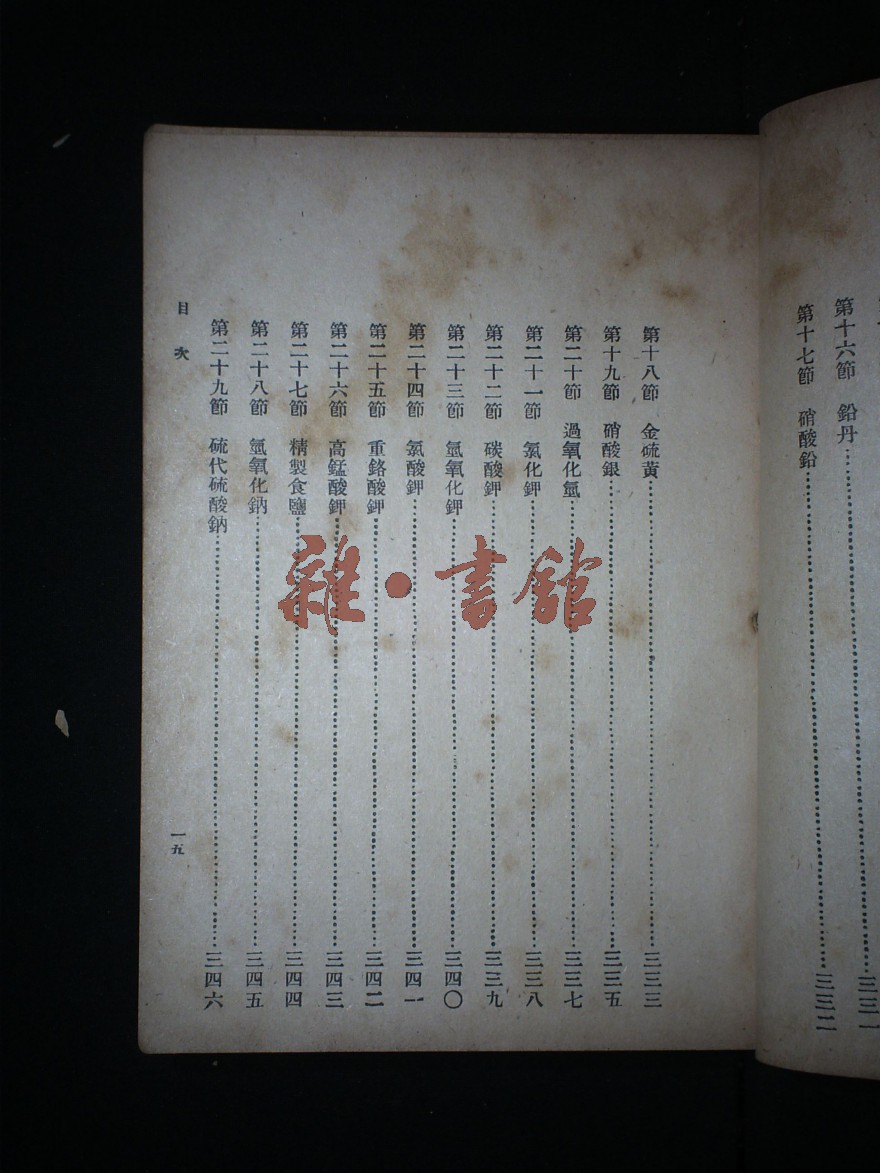 第十六節　鉛丹……三三一
第十七節　硝酸鉛……三三二
第十八節　金硫黃……三三三
第十九節　硝酸銀……三三五
第二十節　過氧化氫……三三七
第二十一節　氯化鉀……三三八
第二十二節　碳酸鉀……三三九
第二十三節　氫氧化鉀……三四〇
第二十四節　氯酸鉀……三四一
第二十五節　重鉻酸鉀……三四二
第二十六節　高錳酸鉀……三四三
第二十七節　精製食鹽……三四四
第二十八節　氫氧化鈉……三四五
第二十九節　硫代硫酸鈉……三四六
目次
一五
雜·書館